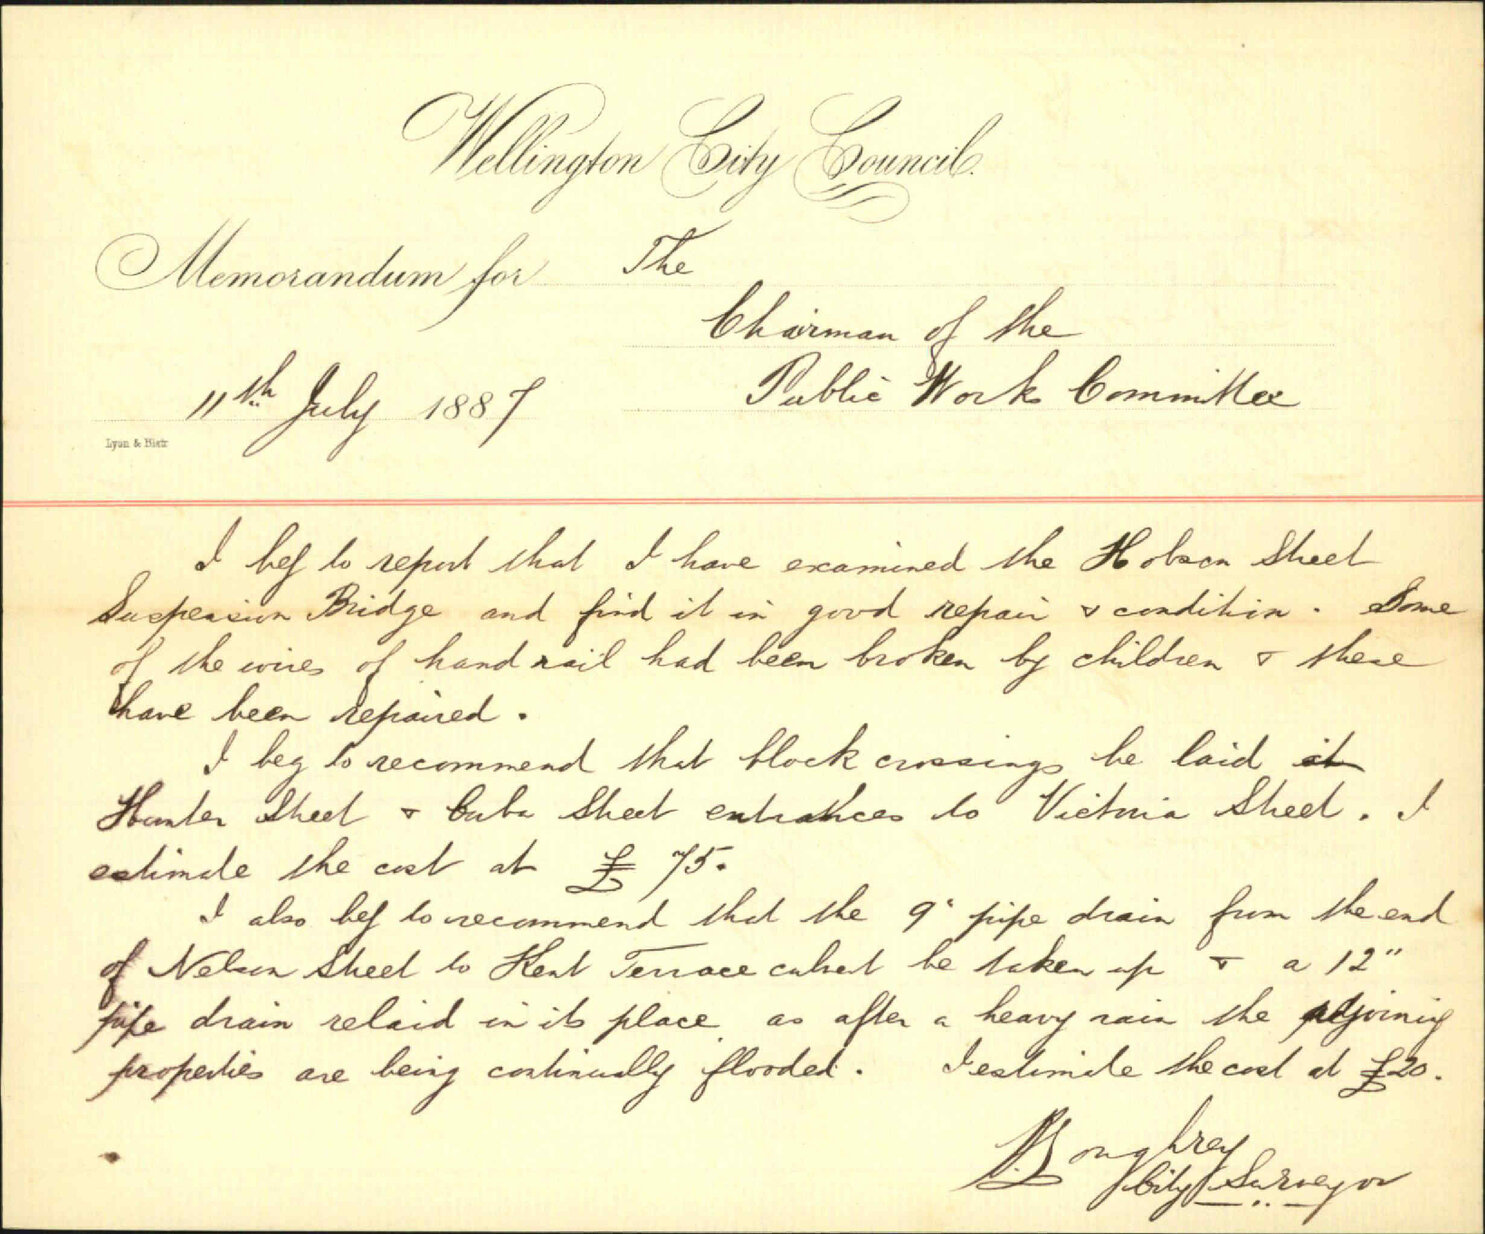 Wellington City Council.
Memorandum for The
Chairman of the
11th July 1887 Public Works Committee
Lyon & Blair
I beg to report that I have examined the Hobson Street
Suspension Bridge and find it in good repair & condition. Some
of the wires of hand rail had been broken by children & these
have been repaired.
I beg to recommend that block crossings be laid at
Hunter Street & Cuba Street entrances to Victoria Street. I
estimate the cost at £75.
I also beg to recommend that the 9" pipe drain from the end
of Nelson Street to Kent Terrace culvert be taken up & a 12"
pipe drain relaid in its place as after a heavy rain the adjoining
properties are being continually flooded. I estimate the cost at £20.
Loughrey
City Surveyor